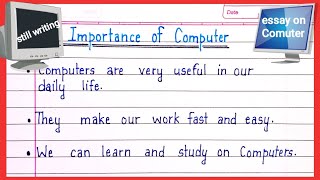 Date
still writing
essay on
Comuter
Importance of Computer
Computers are very useful in our
daily life.
They make our work fast and easy.
We can learn and study on Computers.